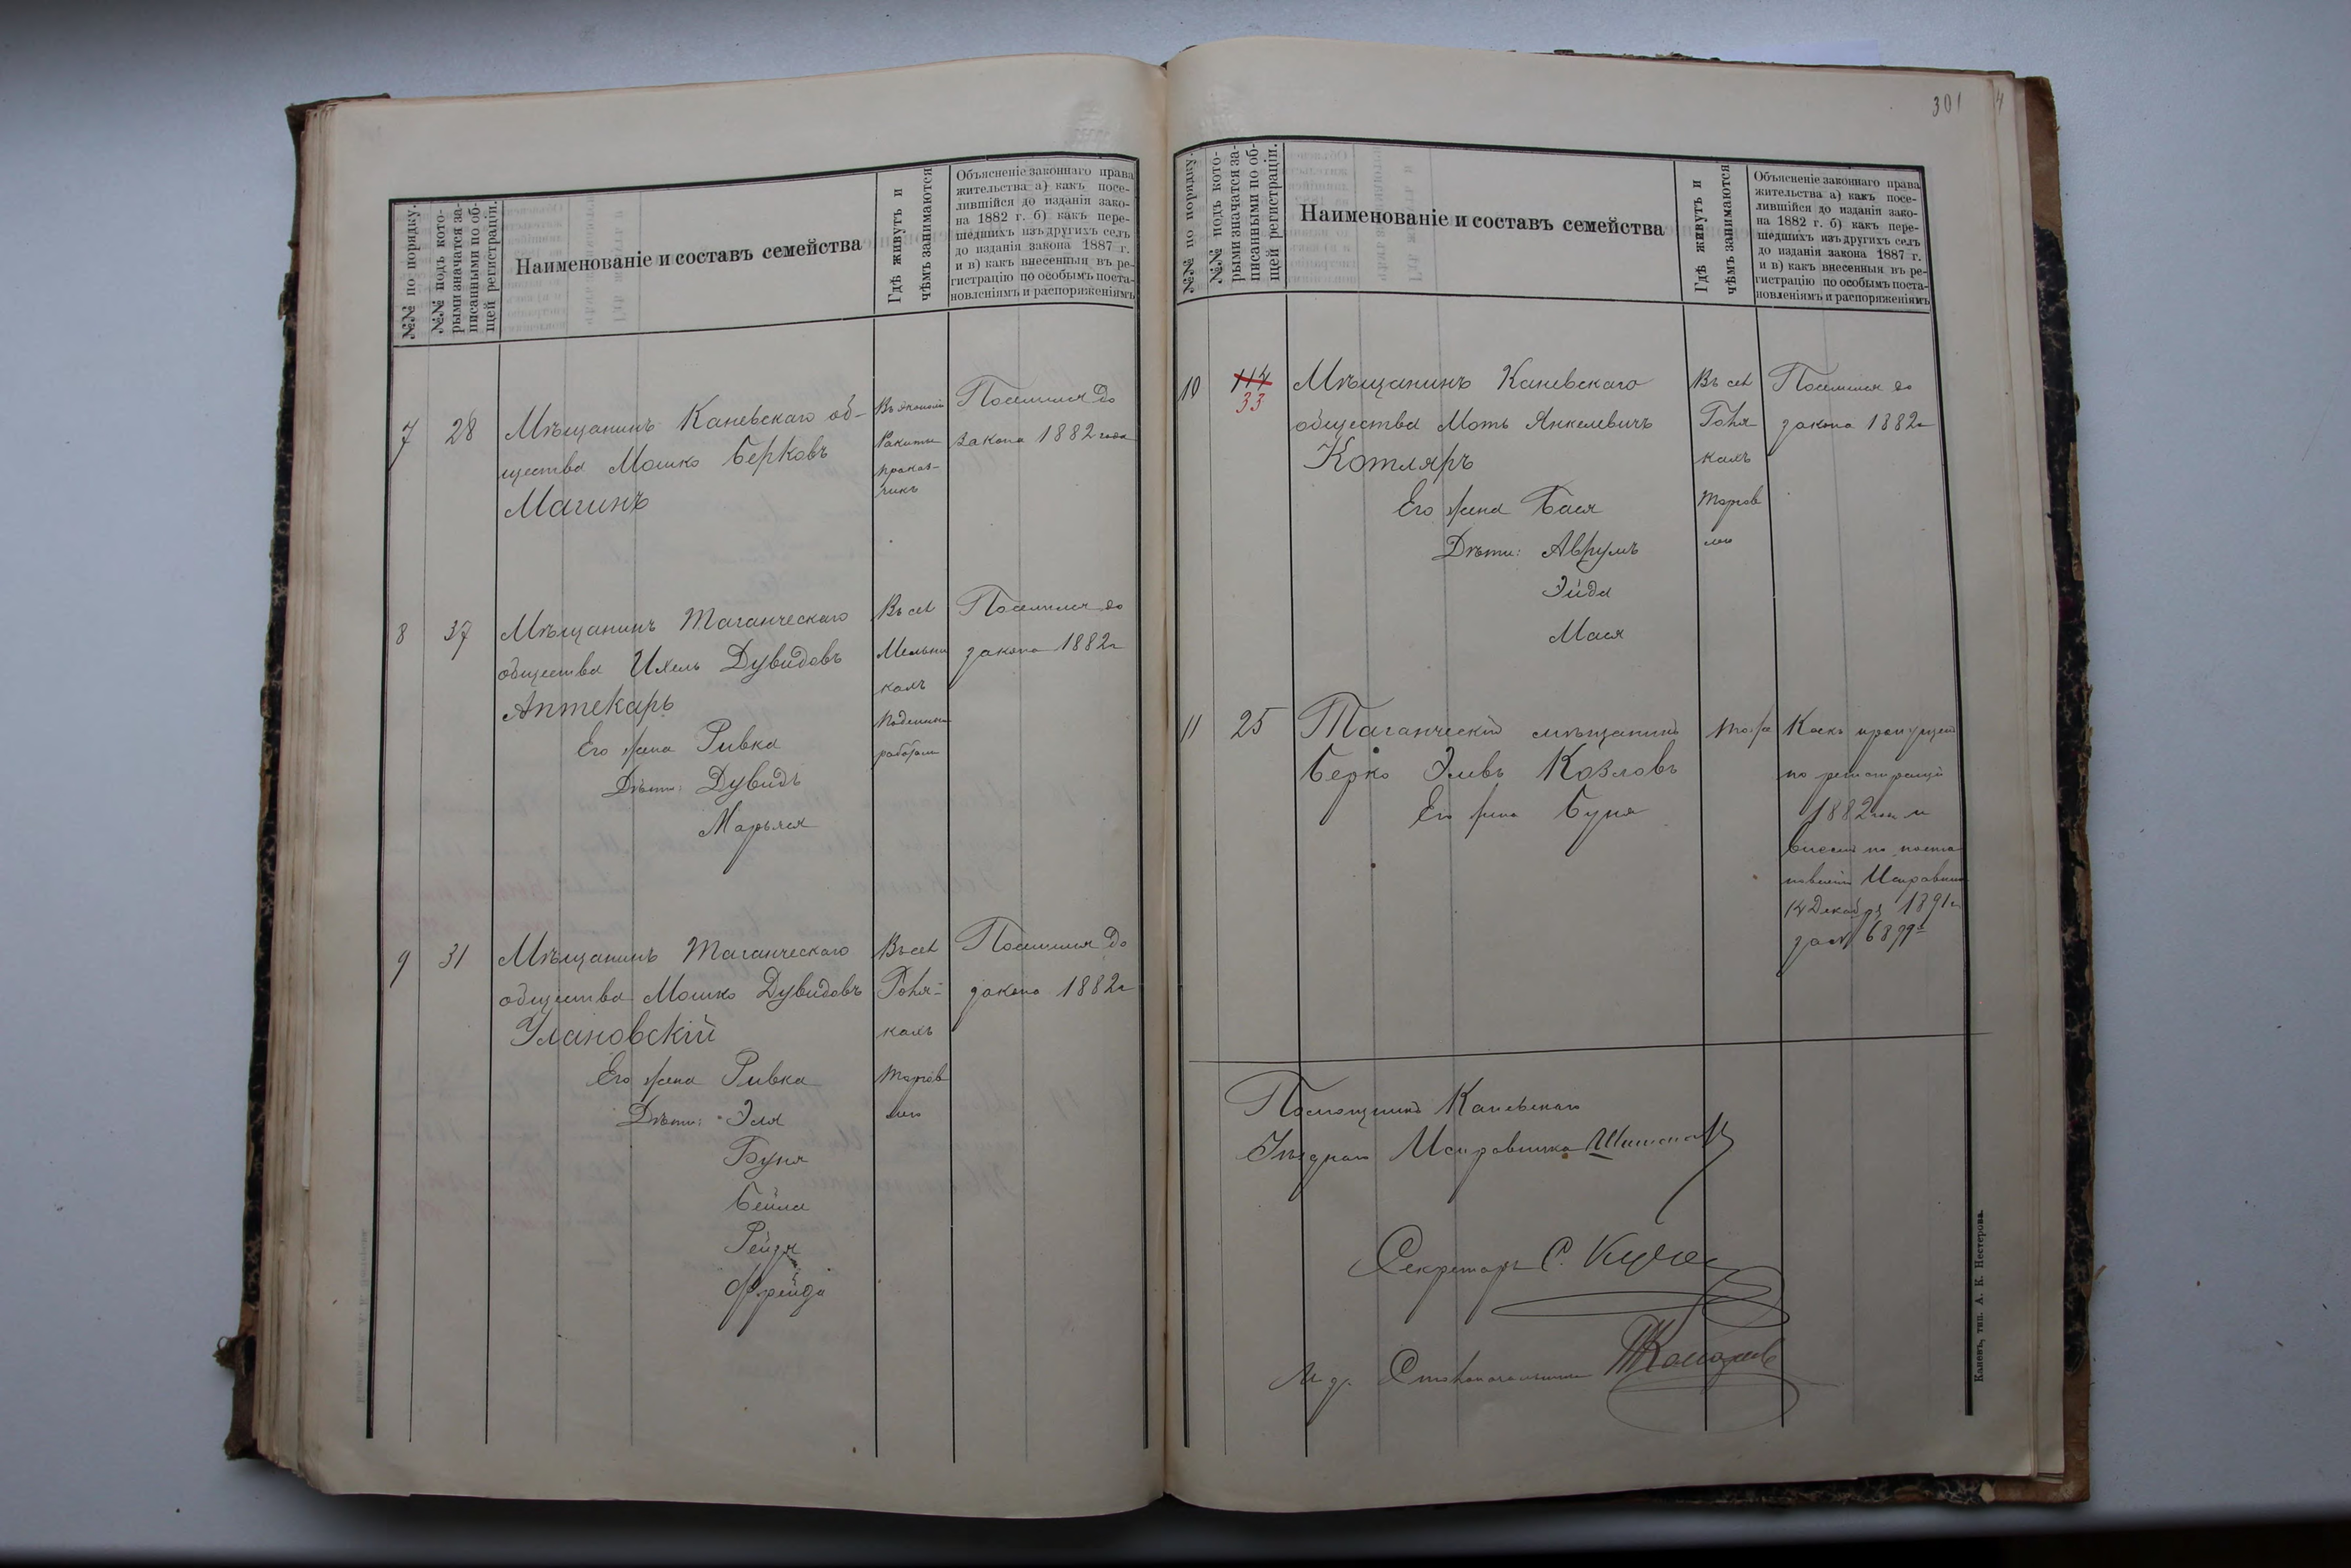 №№ по порядку.
№№ подъ кото-
рыми значатся за-
писанными по об-
щей регистраціи.
Наименованіе и составъ семейства
Гдѣ живутъ и
чѣмъ занимаются
Объясненіе законнаго права
жительства а) какъ посе-
лившійся до изданія зако-
на 1882 г. б) какъ пере-
шедшихъ изъ другихъ селъ
до изданія закона 1887 г.
и в) какъ внесенныя въ ре-
гистрацію по особымъ поста-
новленіямъ и распоряженіямъ
7
28
Мѣщанинъ Каневскаго об-
щества Мошко Берковъ
Магинъ
Въ
Ракитн
приказ-
чикъ
Поселился до
закона 1882 года
8
37
Мѣщанинъ Таганческаго
общества Ихель Дувидовъ
Аптекарь
Его жена Ривка
Дѣти: Дувидъ
Марьяся
Въ сел
Мельни
кахъ
Поселился до
закона 1882г
9
31
Мѣщанинъ Таганческаго
общества Мошко Дувидовъ
Улановскій
Его жена Ривка
Дѣти: Эля
Буня
Бейла
Рейзя
Фрейда
Въ сел
Горя-
кахъ
торгов
лею
Поселился до
закона 1882г
301
4
№№ по порядку.
№№ подъ кото-
рыми значатся за-
писанными по об-
щей регистраціи.
Наименованіе и составъ семейства
Гдѣ живутъ и
чѣмъ занимаются
Объясненіе законнаго права
жительства а) какъ посе-
лившійся до изданія зако-
на 1882 г. б) какъ пере-
шедшихъ изъ другихъ селъ
до изданія закона 1887 г.
и в) какъ внесенныя въ ре-
гистрацію по особымъ поста-
новленіямъ и распоряженіямъ
10
114
33
Мѣщанинъ Каневскаго
общества Моть Янкелевичъ
Котляръ
Его жена Бася
Дѣти: Аврумъ
Эйда
Мася
Въ сел
кахъ
торгов
лею
Поселился до
закона 1882г
11
25
Таганческій мѣщанинъ
Берко Эливъ Козловъ
Его жена Буня
Какъ пропущен
по регистраціи
1882 и
внесен по поста
новленію Исправника
14 Декабря 1891г
за № 6899
Помощникъ Каневскаго
Уѣзднаго Исправника
Секретарь С.
И. д. Столоначальника
Каневъ, тип. А. К. Нестерова.